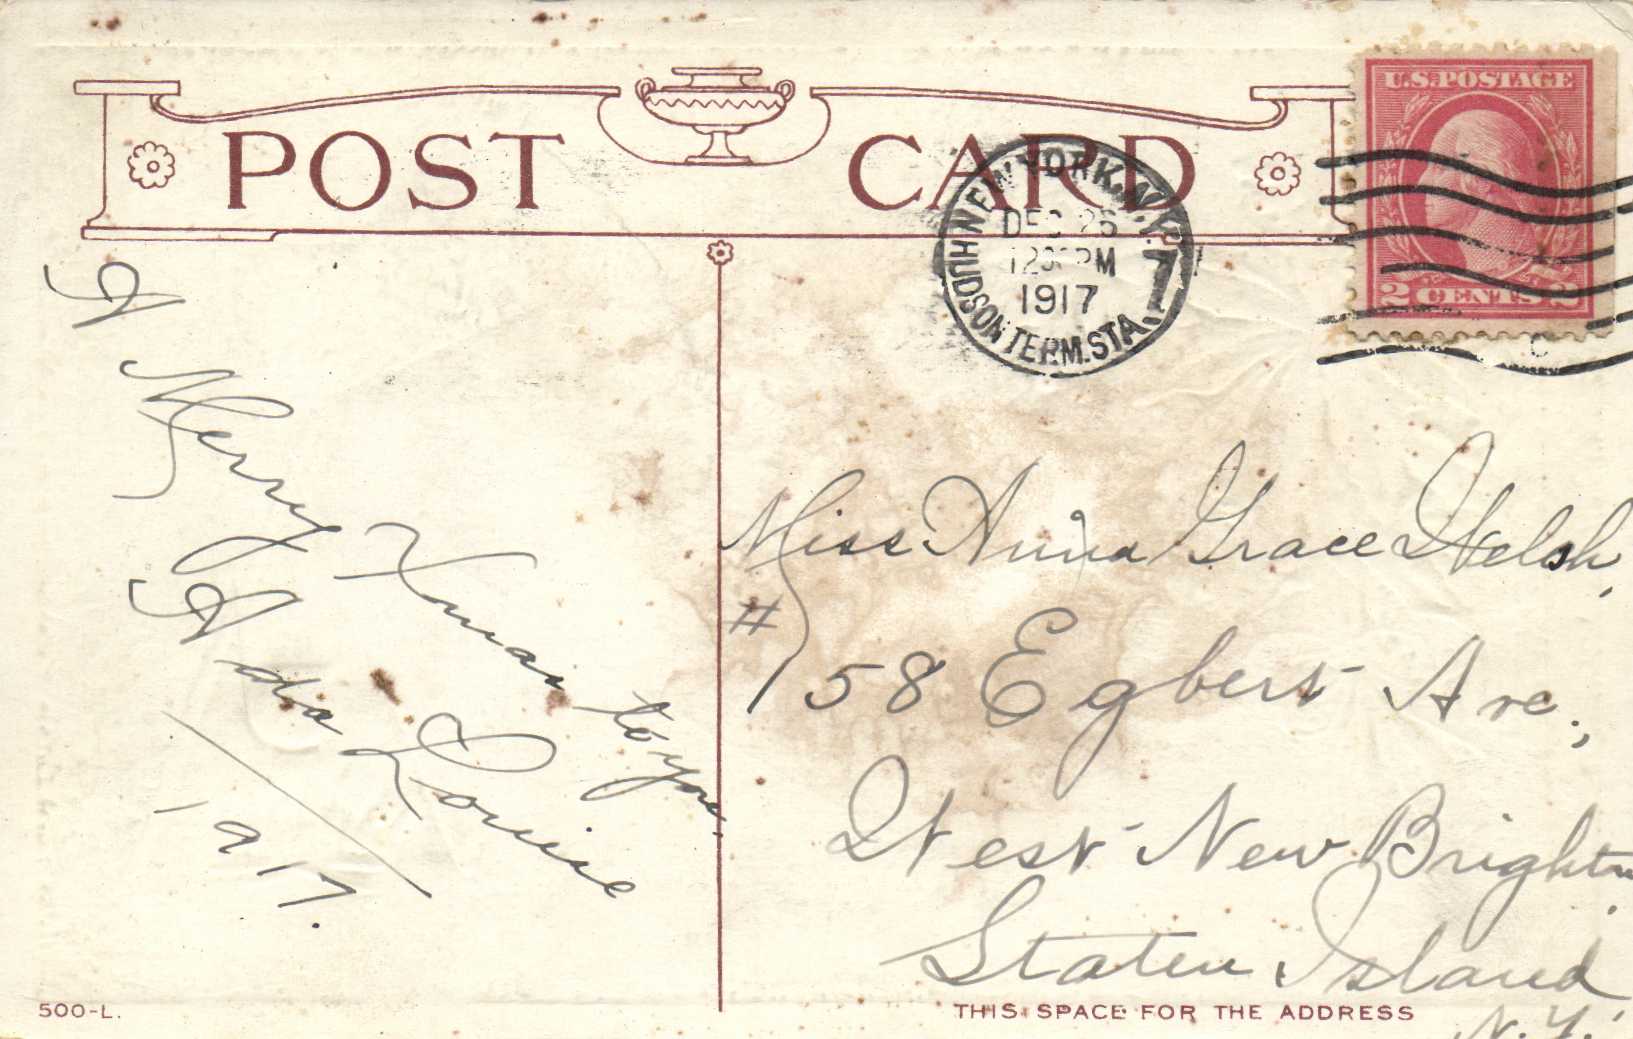 POST CARD
U.S. POSTAGE
2 CENTS 2
NEW YORK, N.Y.
DEC 26
1917
1
HUDSON TERM. STA.
A
Merry
Xmas to you.
Ada Louise
1917.
Miss Anna Grace Welsh,
# 158 Egbert Ave.,
West New Brighton
Staten Island
N.Y.
500-L.
THIS SPACE FOR THE ADDRESS